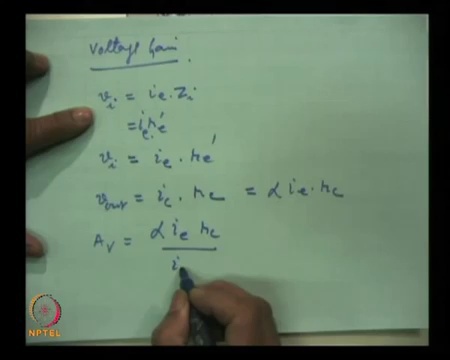 Voltage Gain.
v_i = i_e . Z_i
= i_e r_e'
v_i = i_e . r_e'
v_out = i_c . r_c = α i_e . r_c
A_V = α i_e r_c
i
NPTEL